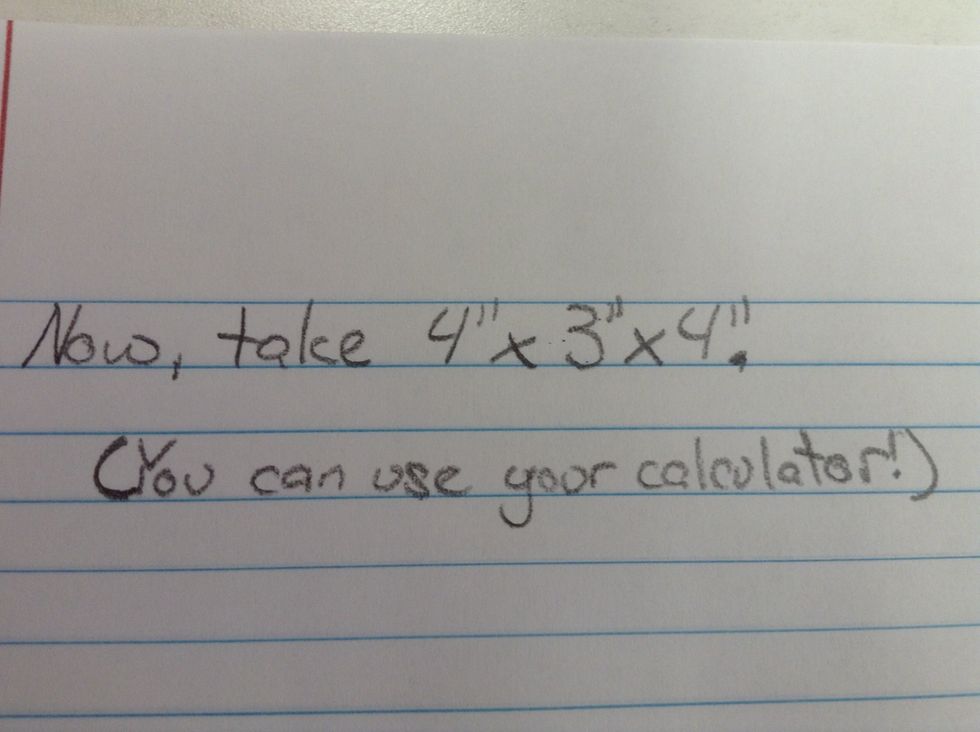 Now, take 4" x 3" x 4".
(You can use your calculator!)